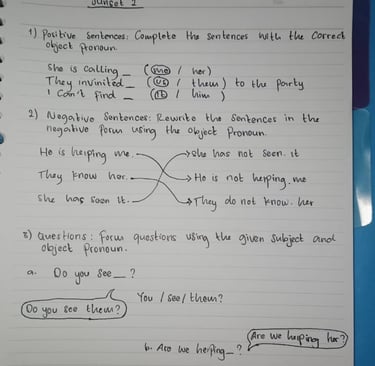 Sunset 2
1) Positive Sentences: Complete the sentences with the correct
object Pronoun.
She is calling _ (me / her)
They invinited _ (us / them) to the party
I can't find _ (it / him)
2) Negative Sentences: Rewrite the Sentences in the
negative form using the object Pronoun.
He is helping me.
She has not seen. it
They know her.
He is not helping. me
She has seen it.
They do not know. her
3) Questions: Form questions using the given subject and
object Pronoun.
a. Do you see _ ?
You / see / them?
Do you see them?
Are we helping her?
b. Are we helping _ ?